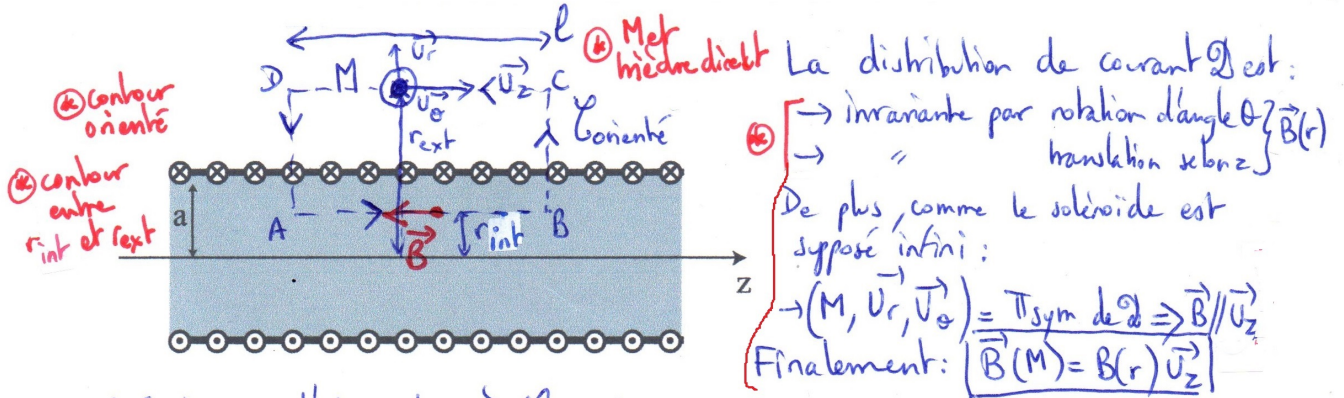 l
⊛ M et
trièdre direct
D M U⃗r U⃗θ U⃗z C
⊛ contour
orienté
r_ext
C orienté
⊛ contour
entre
r_int et r_ext
a
A B⃗ r_int B
z
La distribution de courant D est :
⊛ → invariante par rotation d'angle θ } B⃗(r)
→ " translation selon z
De plus, comme le solénoïde est
supposé infini :
→ (M, U⃗r, U⃗θ) = Π sym de D => B⃗ // U⃗z
Finalement : B⃗(M) = B(r) U⃗z